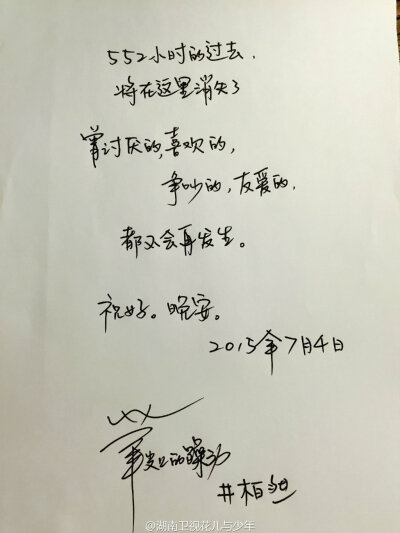 552小时的过去,
将在这里消失了
曾讨厌的,喜欢的,
争吵的,友爱的,
都不会再发生。
祝好。晚安。
2015年7月4日
的躁动
井柏然
@湖南卫视花儿与少年